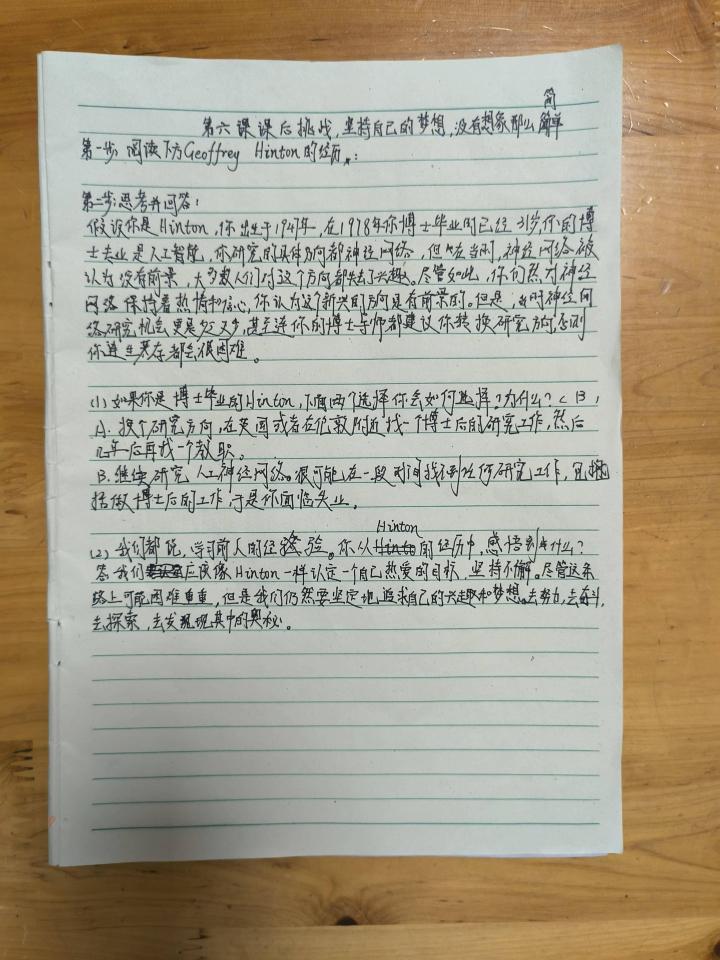 第六课课后挑战,坚持自己的梦想,没有想象那么简单
第一步:阅读下方Geoffrey Hinton的经历:
第二步:思考并回答:
假设你是Hinton,你出生于1947年,在1978年你博士毕业时已经31岁,你的博
士专业是人工智能,你研究的具体方向都神经网络,但在当时,神经网络被
认为没有前景,大多数人们对这个方向都失去了兴趣。尽管如此,你仍然对神经
网络保持着热情和信心,你认为这个新兴的方向是有前景的。但是,当时神经网
络研究机会更是少之又少,甚至连你的博士导师都建议你转换研究方向,否则
你连生存都会很困难。
(1)如果你是博士毕业的Hinton,下面两个选择你会如何选择?为什么?(B)
A.换个研究方向,在英国或者在伦敦附近找一个博士后的研究工作,然后
几年后再找一个教职。
B.继续研究人工神经网络。很可能在一段时间找不到任何研究工作,包
括做博士后的工作,于是你面临失业。
(2)我们都说,学习前人的经验。你从Hinton的经历中,感悟到什么?
答:我们应该像Hinton一样认定一个自己热爱的目标,坚持不懈。尽管这条
路上可能困难重重,但是我们仍然要坚定地追求自己的兴趣和梦想。去努力,去奋斗,
去探索,去发现其中的奥秘。